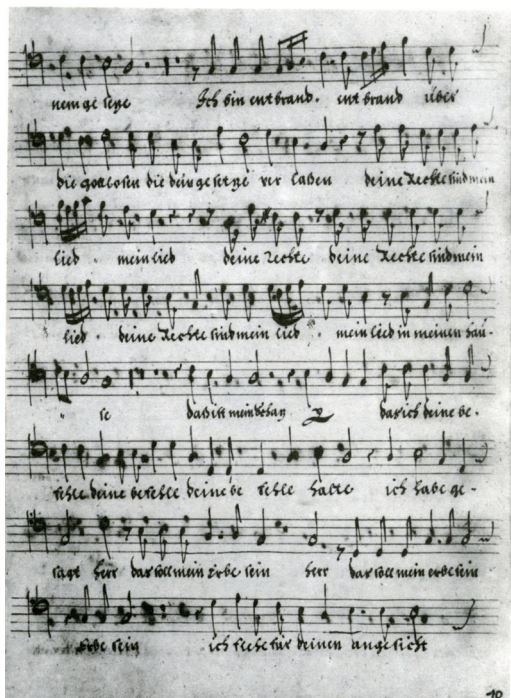 nem ge setze Ich bin entbrand. entbrand über
die gottlosen die dein gesetze ver laßen deine Rechte sind mein
lied. mein lied deine Rechte deine Rechte sind mein
lied. deine Rechte sind mein lied. mein lied in meinen hau-
se daß ist mein schaz das ich deine be-
fehle deine befehle deine be fehle halte ich habe ge-
sagt Herr das soll mein Erbe sein Herr das soll mein erbe sein
Erbe sein ich flehe für deinen angesicht
10